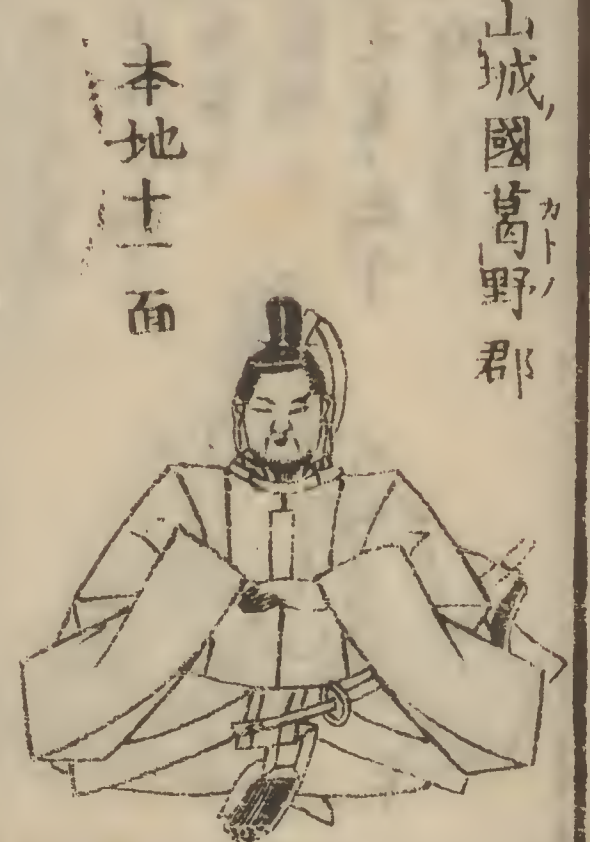 山城ノ國葛野カトノ郡
本地十一面